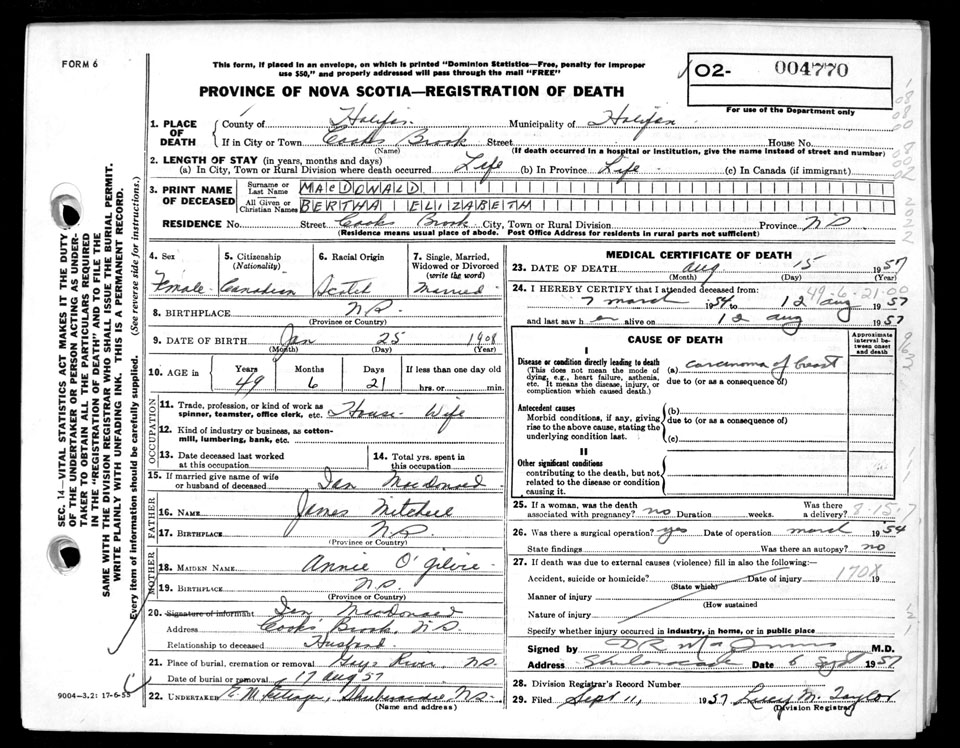 FORM 6
This form, if placed in an envelope, on which is printed "Dominion Statistics—Free, penalty for improper
use $50," and properly addressed will pass through the mail "FREE"
O2- 004770
For use of the Department only
PROVINCE OF NOVA SCOTIA—REGISTRATION OF DEATH
1. PLACE OF DEATH
County of Halifax Municipality of Halifax
If in City or Town Cooks Brook Street House No.
(Name) (If death occurred in a hospital or institution, give the name instead of street and number)
2. LENGTH OF STAY (in years, months and days)
(a) In City, Town or Rural Division where death occurred Life (b) In Province Life (c) In Canada (if immigrant)
3. PRINT NAME OF DECEASED
Surname or Last Name MACDONALD
All Given or Christian Names BERTHA ELIZABETH
RESIDENCE No. Street Cooks Brook City, Town or Rural Division Province NS
(Residence means usual place of abode. Post Office Address for residents in rural parts not sufficient)
4. Sex
Female
5. Citizenship
(Nationality)
Canadian
6. Racial Origin
Scotch
7. Single, Married,
Widowed or Divorced
(write the word)
Married
8. BIRTHPLACE N.S.
(Province or Country)
9. DATE OF BIRTH Jan 25 1908
(Month) (Day) (Year)
10. AGE in
Years Months Days If less than one day old
49 6 21 hrs. or min.
OCCUPATION
11. Trade, profession, or kind of work as
spinner, teamster, office clerk, etc. House-Wife
12. Kind of industry or business, as cotton-
mill, lumbering, bank, etc.
13. Date deceased last worked
at this occupation
14. Total yrs. spent in
this occupation
15. If married give name of wife
or husband of deceased Ian Macdonald
FATHER
16. NAME James Mitchell
17. BIRTHPLACE N.S.
(Province or Country)
MOTHER
18. MAIDEN NAME Annie O'gilvie
19. BIRTHPLACE N.S.
(Province or Country)
20. Signature of informant Ian Macdonald
Address Cooks Brook, N.S.
Relationship to deceased Husband
21. Place of burial, cremation or removal Gays River, N.S.
Date of burial or removal 17 Aug 57
22. UNDERTAKER Shubenacadie, N.S.
(Name and address)
MEDICAL CERTIFICATE OF DEATH
23. DATE OF DEATH Aug 15 1957
(Month) (Day) (Year)
24. I HEREBY CERTIFY that I attended deceased from:
49-6-21-00
7 March 1954 to 12 aug 1957
and last saw h er alive on 12 aug 1957
CAUSE OF DEATH
Approximate
interval between
onset
and death
I
Disease or condition directly leading to death
(This does not mean the mode of
dying, e.g., heart failure, asthenia,
etc. It means the disease, injury, or
complication which caused death.)
(a) carcinoma of breast
due to (or as a consequence of)
Antecedent causes
Morbid conditions, if any, giving
rise to the above cause, stating the
underlying condition last.
(b)
due to (or as a consequence of)
(c)
II
Other significant conditions
contributing to the death, but not
related to the disease or condition
causing it.
25. If a woman, was the death
associated with pregnancy? no Duration weeks. Was there
a delivery?
8-15-7
26. Was there a surgical operation? yes Date of operation march 1954
State findings Was there an autopsy? no
27. If death was due to external causes (violence) fill in also the following:—
Accident, suicide or homicide? Date of injury 19
(State which)
170X
Manner of injury
(How sustained
Nature of injury
Specify whether injury occurred in industry, in home, or in public place
Signed by DR MacInnis M.D.
Address Shubenacadie Date 6 Sept 1957
28. Division Registrar's Record Number
29. Filed Sept 11, 1957 Lucy M. Taylor
(Division Registrar)
SEC. 14—VITAL STATISTICS ACT MAKES IT THE DUTY
OF THE UNDERTAKER OR PERSON ACTING AS UNDER-
TAKER TO OBTAIN ALL THE PARTICULARS REQUIRED
IN THE "REGISTRATION OF DEATH" AND TO FILE THE
SAME WITH THE DIVISION REGISTRAR WHO SHALL ISSUE THE BURIAL PERMIT.
WRITE PLAINLY WITH UNFADING INK. THIS IS A PERMANENT RECORD.
Every item of information should be carefully supplied. (See reverse side for instructions.)
9004-3.2: 17-6-55